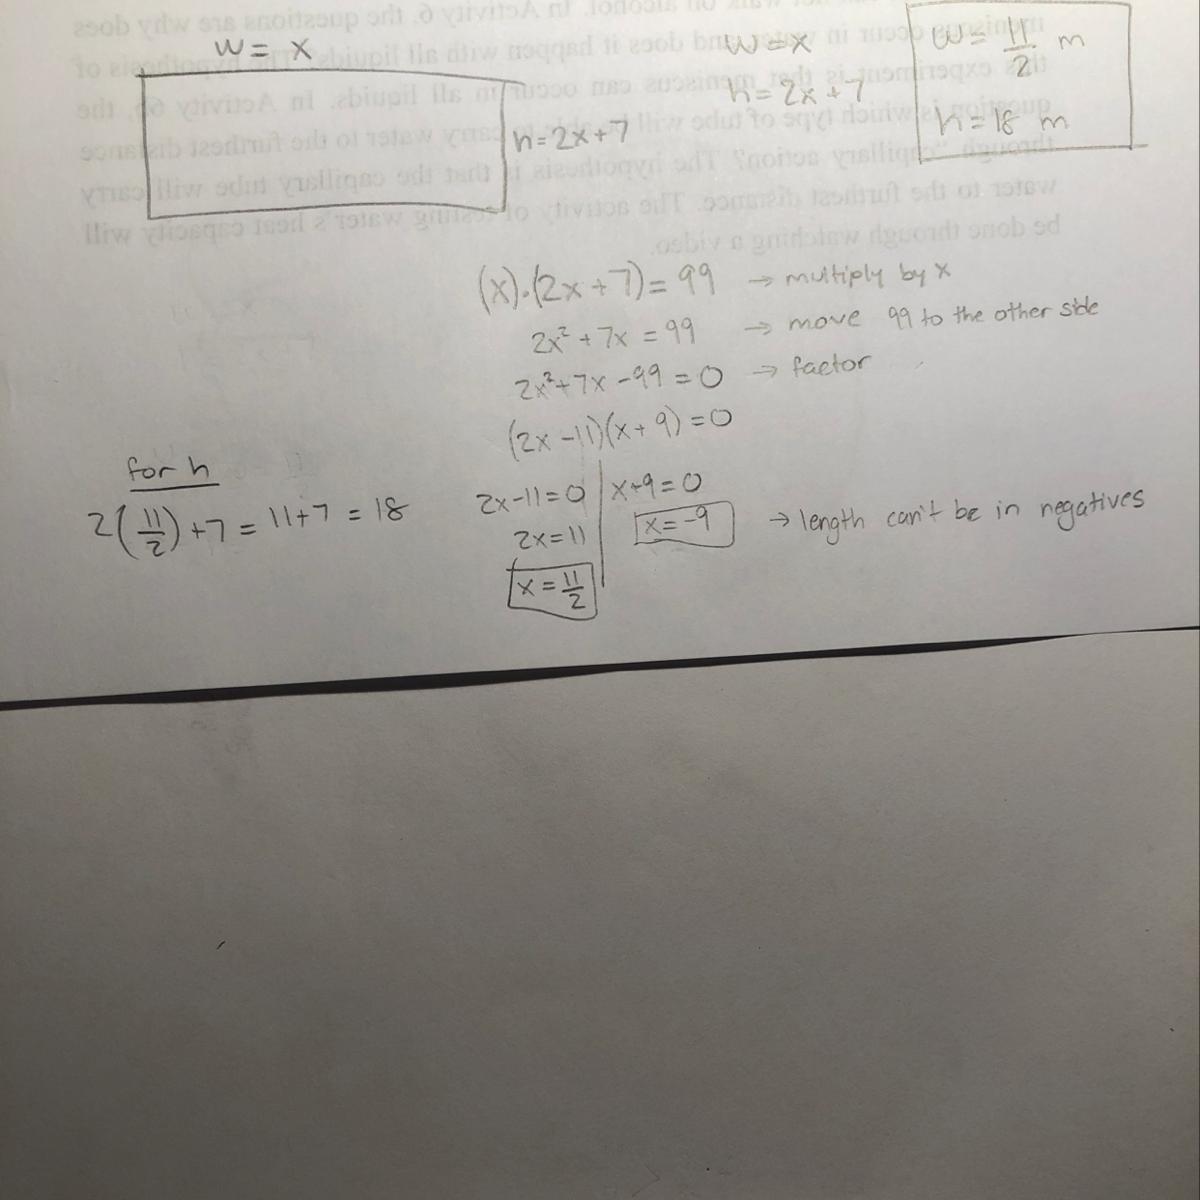 w = x
h = 2x+7
w = x
h = 2x+7
w = 11/2 m
h = 18 m
(x)·(2x+7) = 99 → multiply by x
2x² + 7x = 99 → move 99 to the other side
2x²+7x-99 = 0 → factor
(2x-11)(x+9) = 0
2x-11=0 | x+9=0
2x=11 | x=-9 → length can't be in negatives
x = 11/2
for h
2(11/2)+7 = 11+7 = 18